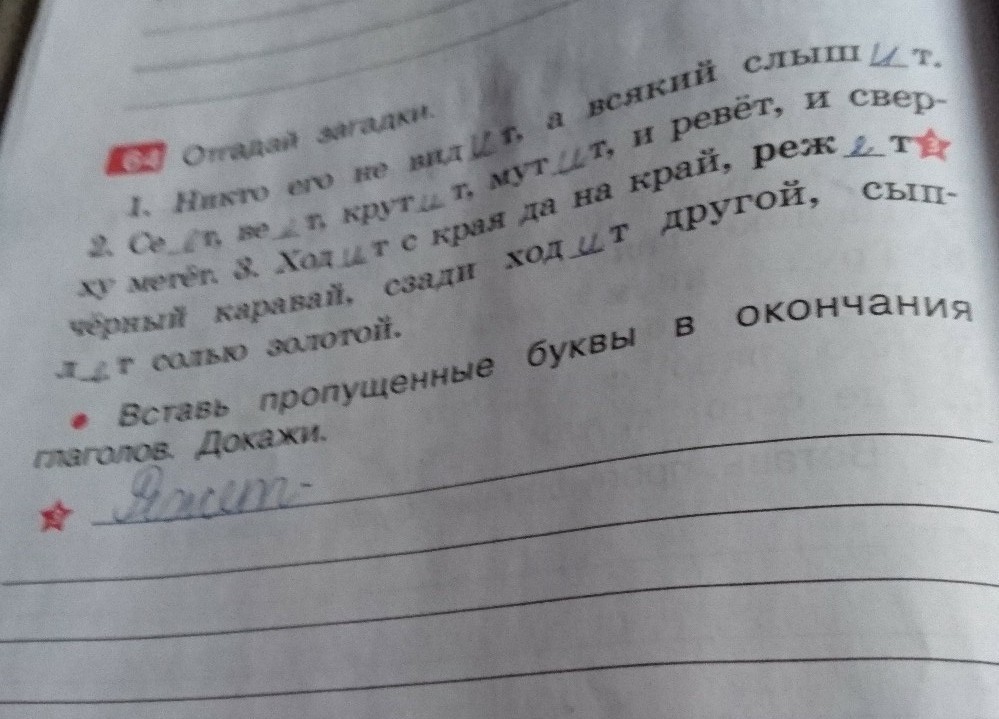 64 Отгадай загадки.
1. Никто его не видит, а всякий слышит.
2. Се_т, ве_т, крутит, мутит, и ревёт, и свер-
ху метёт. 3. Ходит с края да на край, режет 2
чёрный каравай, сзади ходит другой, сып-
лет солью золотой.
• Вставь пропущенные буквы в окончания
глаголов. Докажи.
2